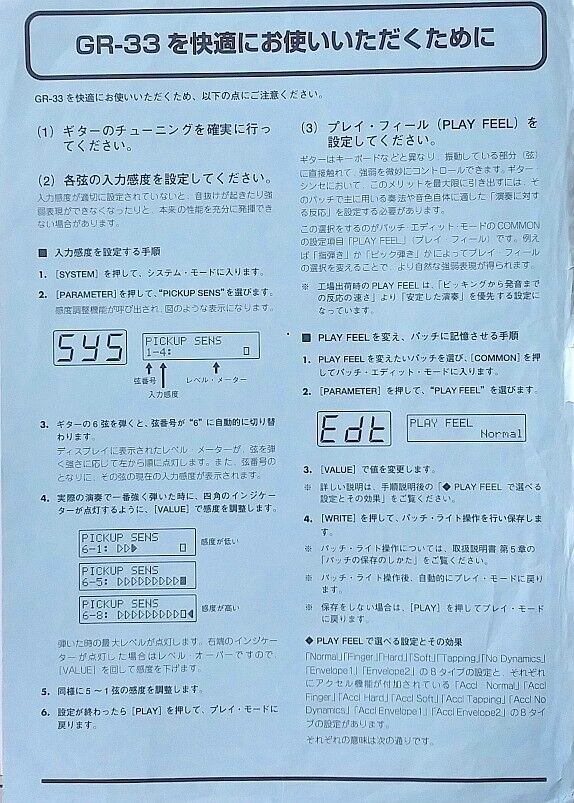 GR-33 を快適にお使いいただくために
GR-33 を快適にお使いいただくため、以下の点にご注意ください。
(1) ギターのチューニングを確実に行っ
てください。
(2) 各弦の入力感度を設定してください。
入力感度が適切に設定されていないと、音抜けが起きたり強
弱表現ができなくなったりと、本来の性能を充分に発揮でき
ない場合があります。
■ 入力感度を設定する手順
1. [SYSTEM] を押して、システム・モードに入ります。
2. [PARAMETER] を押して、“PICKUP SENS”を選びます。
感度調整機能が呼び出され、図のような表示になります。
SYS
PICKUP SENS
1-4:
弦番号
レベル・メーター
入力感度
3. ギターの 6 弦を弾くと、弦番号が “6” に自動的に切り替
わります。
ディスプレイに表示されたレベル・メーターが、弦を弾
く強さに応じて左から順に点灯します。また、弦番号の
となりに、その弦の現在の入力感度が表示されます。
4. 実際の演奏で一番強く弾いた時に、四角のインジケー
ターが点灯するように、[VALUE] で感度を調整します。
PICKUP SENS
6-1:
感度が低い
PICKUP SENS
6-5:
PICKUP SENS
6-8:
感度が高い
弾いた時の最大レベルが点灯します。右端のインジケー
ターが点灯した場合はレベル・オーバーですので、
[VALUE] を回して感度を下げます。
5. 同様に 5 ～ 1 弦の感度を調整します。
6. 設定が終わったら [PLAY] を押して、プレイ・モードに
戻ります。
(3) プレイ・フィール (PLAY FEEL) を
設定してください。
ギターはキーボードなどと異なり、振動している部分（弦）
に直接触れて、強弱を微妙にコントロールできます。ギター・
シンセにおいて、このメリットを最大限に引き出すには、そ
のパッチで主に用いる奏法や音色自体に適した「演奏に対す
る反応」を設定する必要があります。
この選択をするのがパッチ・エディット・モードの COMMON
の設定項目「PLAY FEEL」（プレイ・フィール）です。例え
ば「指弾き」か「ピック弾き」かによってプレイ・フィール
の選択を変えることで、より自然な強弱表現が得られます。
※ 工場出荷時の PLAY FEEL は、「ピッキングから発音まで
の反応の速さ」より「安定した演奏」を優先する設定に
なっています。
■ PLAY FEEL を変え、パッチに記憶させる手順
1. PLAY FEEL を変えたいパッチを選び、[COMMON] を押
してパッチ・エディット・モードに入ります。
2. [PARAMETER] を押して、“PLAY FEEL” を選びます。
Edt
PLAY FEEL
Normal
3. [VALUE] で値を変更します。
※ 詳しい説明は、手順説明後の「◆ PLAY FEEL で選べる
設定とその効果」をご覧ください。
4. [WRITE] を押して、パッチ・ライト操作を行い保存しま
す。
※ パッチ・ライト操作については、取扱説明書 第 5 章の
「パッチの保存のしかた」をご覧ください。
※ パッチ・ライト操作後、自動的にプレイ・モードに戻り
ます。
※ 保存をしない場合は、[PLAY] を押してプレイ・モード
に戻ります。
◆ PLAY FEEL で選べる設定とその効果
「Normal」「Finger」「Hard」「Soft」「Tapping」「No Dynamics」
「Envelope1」「Envelope2」の 8 タイプの設定と、それぞれ
にアクセル機能が付加されている「Accl Normal」「Accl
Finger」「Accl Hard」「Accl Soft」「Accl Tapping」「Accl No
Dynamics」「Accl Envelope1」「Accl Envelope2」の 8 タイ
プの設定があります。
それぞれの意味は次の通りです。